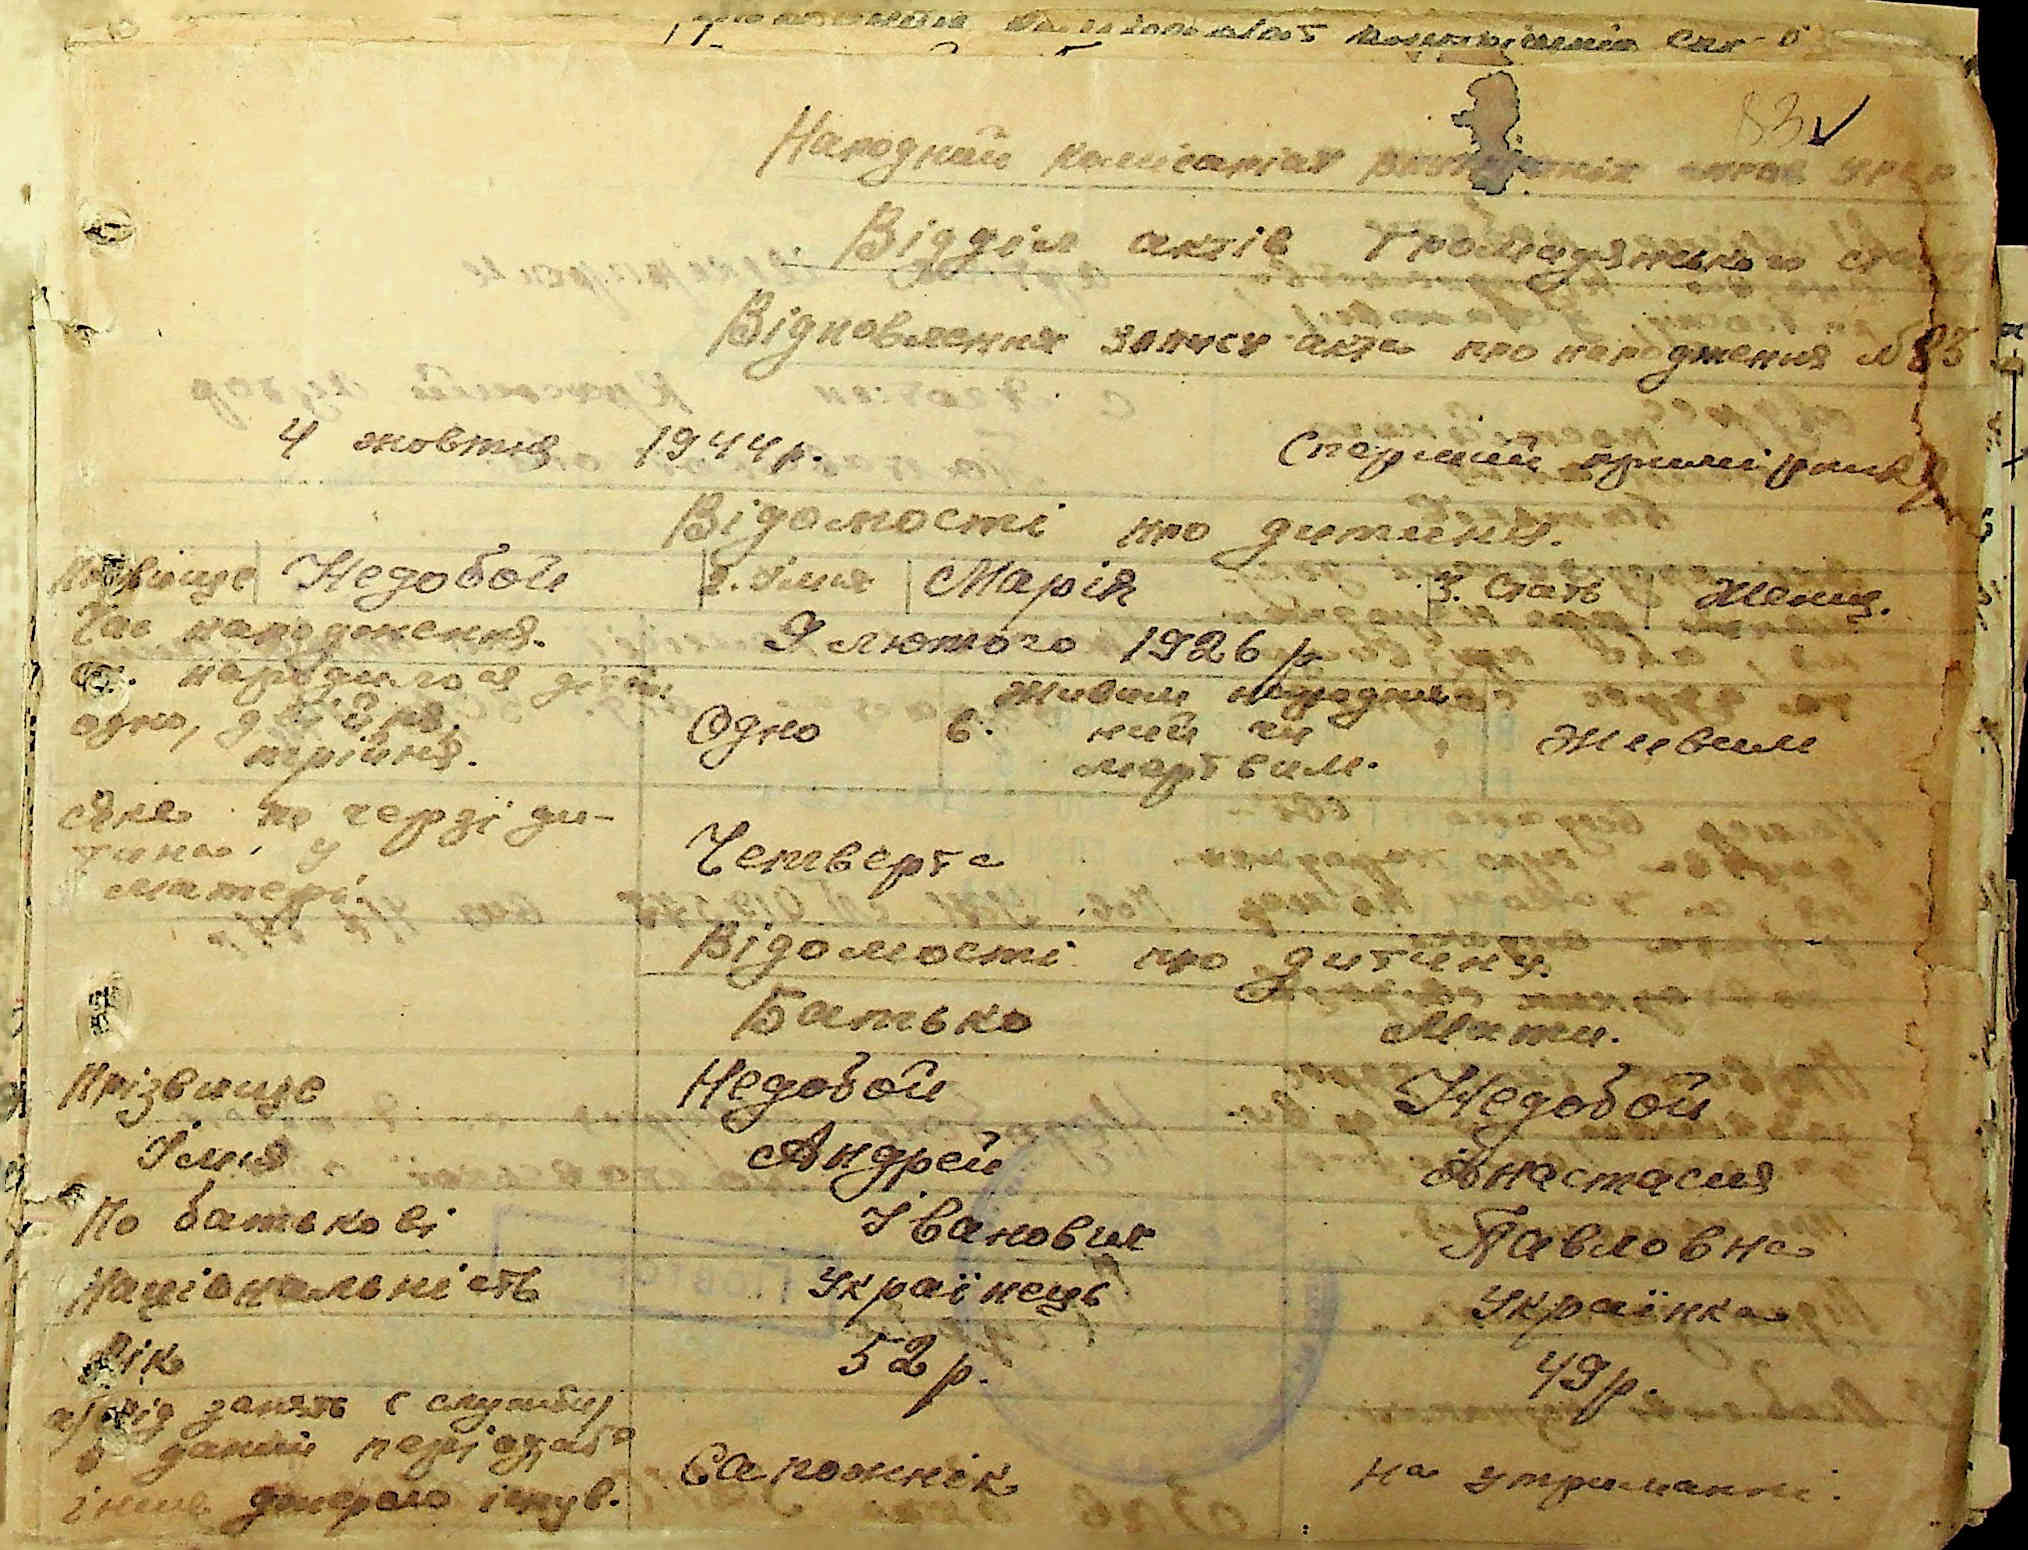 83
Народний комісаріат внутрішніх справ УРСР
Відділ актів громадянського стану
Відновлення запису акта про народження № 83
4 жовтня 1944 р. Перший примірник
Відомості про дитину.
Прізвище Недобой 2. Імя Марія 3. Стать Женщ.
Час народження. 9 лютого 1926 р
народилося дітей:
одно, двійня, трійня. Одно 6. Живим народжений чи мертвим. Живим
яка по черзі дитина у матері. Четверта
Відомості про дитину.
Батько Мати.
Прізвище Недобой Недобой
Імя Андрей Анастасия
По батькові Іванович Павловна
Національність Українець Українка
Вік 52 р. 49 р.
а) Рід занять (служби)
в даний період або
інше джерело існув. Сапожнік На утриманні.